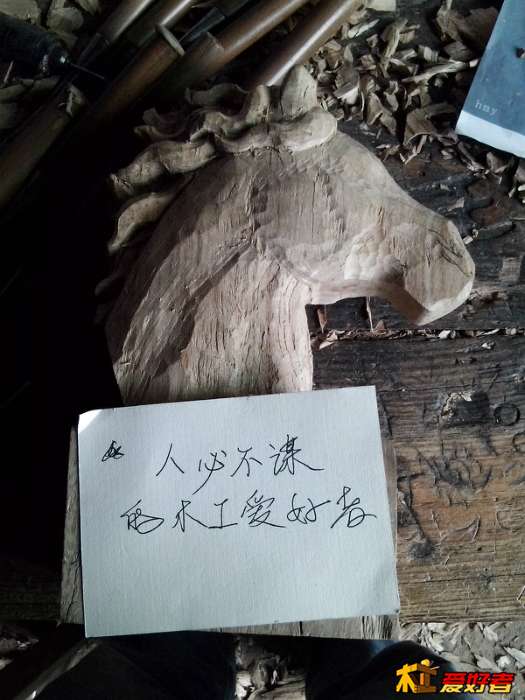 hmy
人必不谋
的木工爱好者
木工爱好者